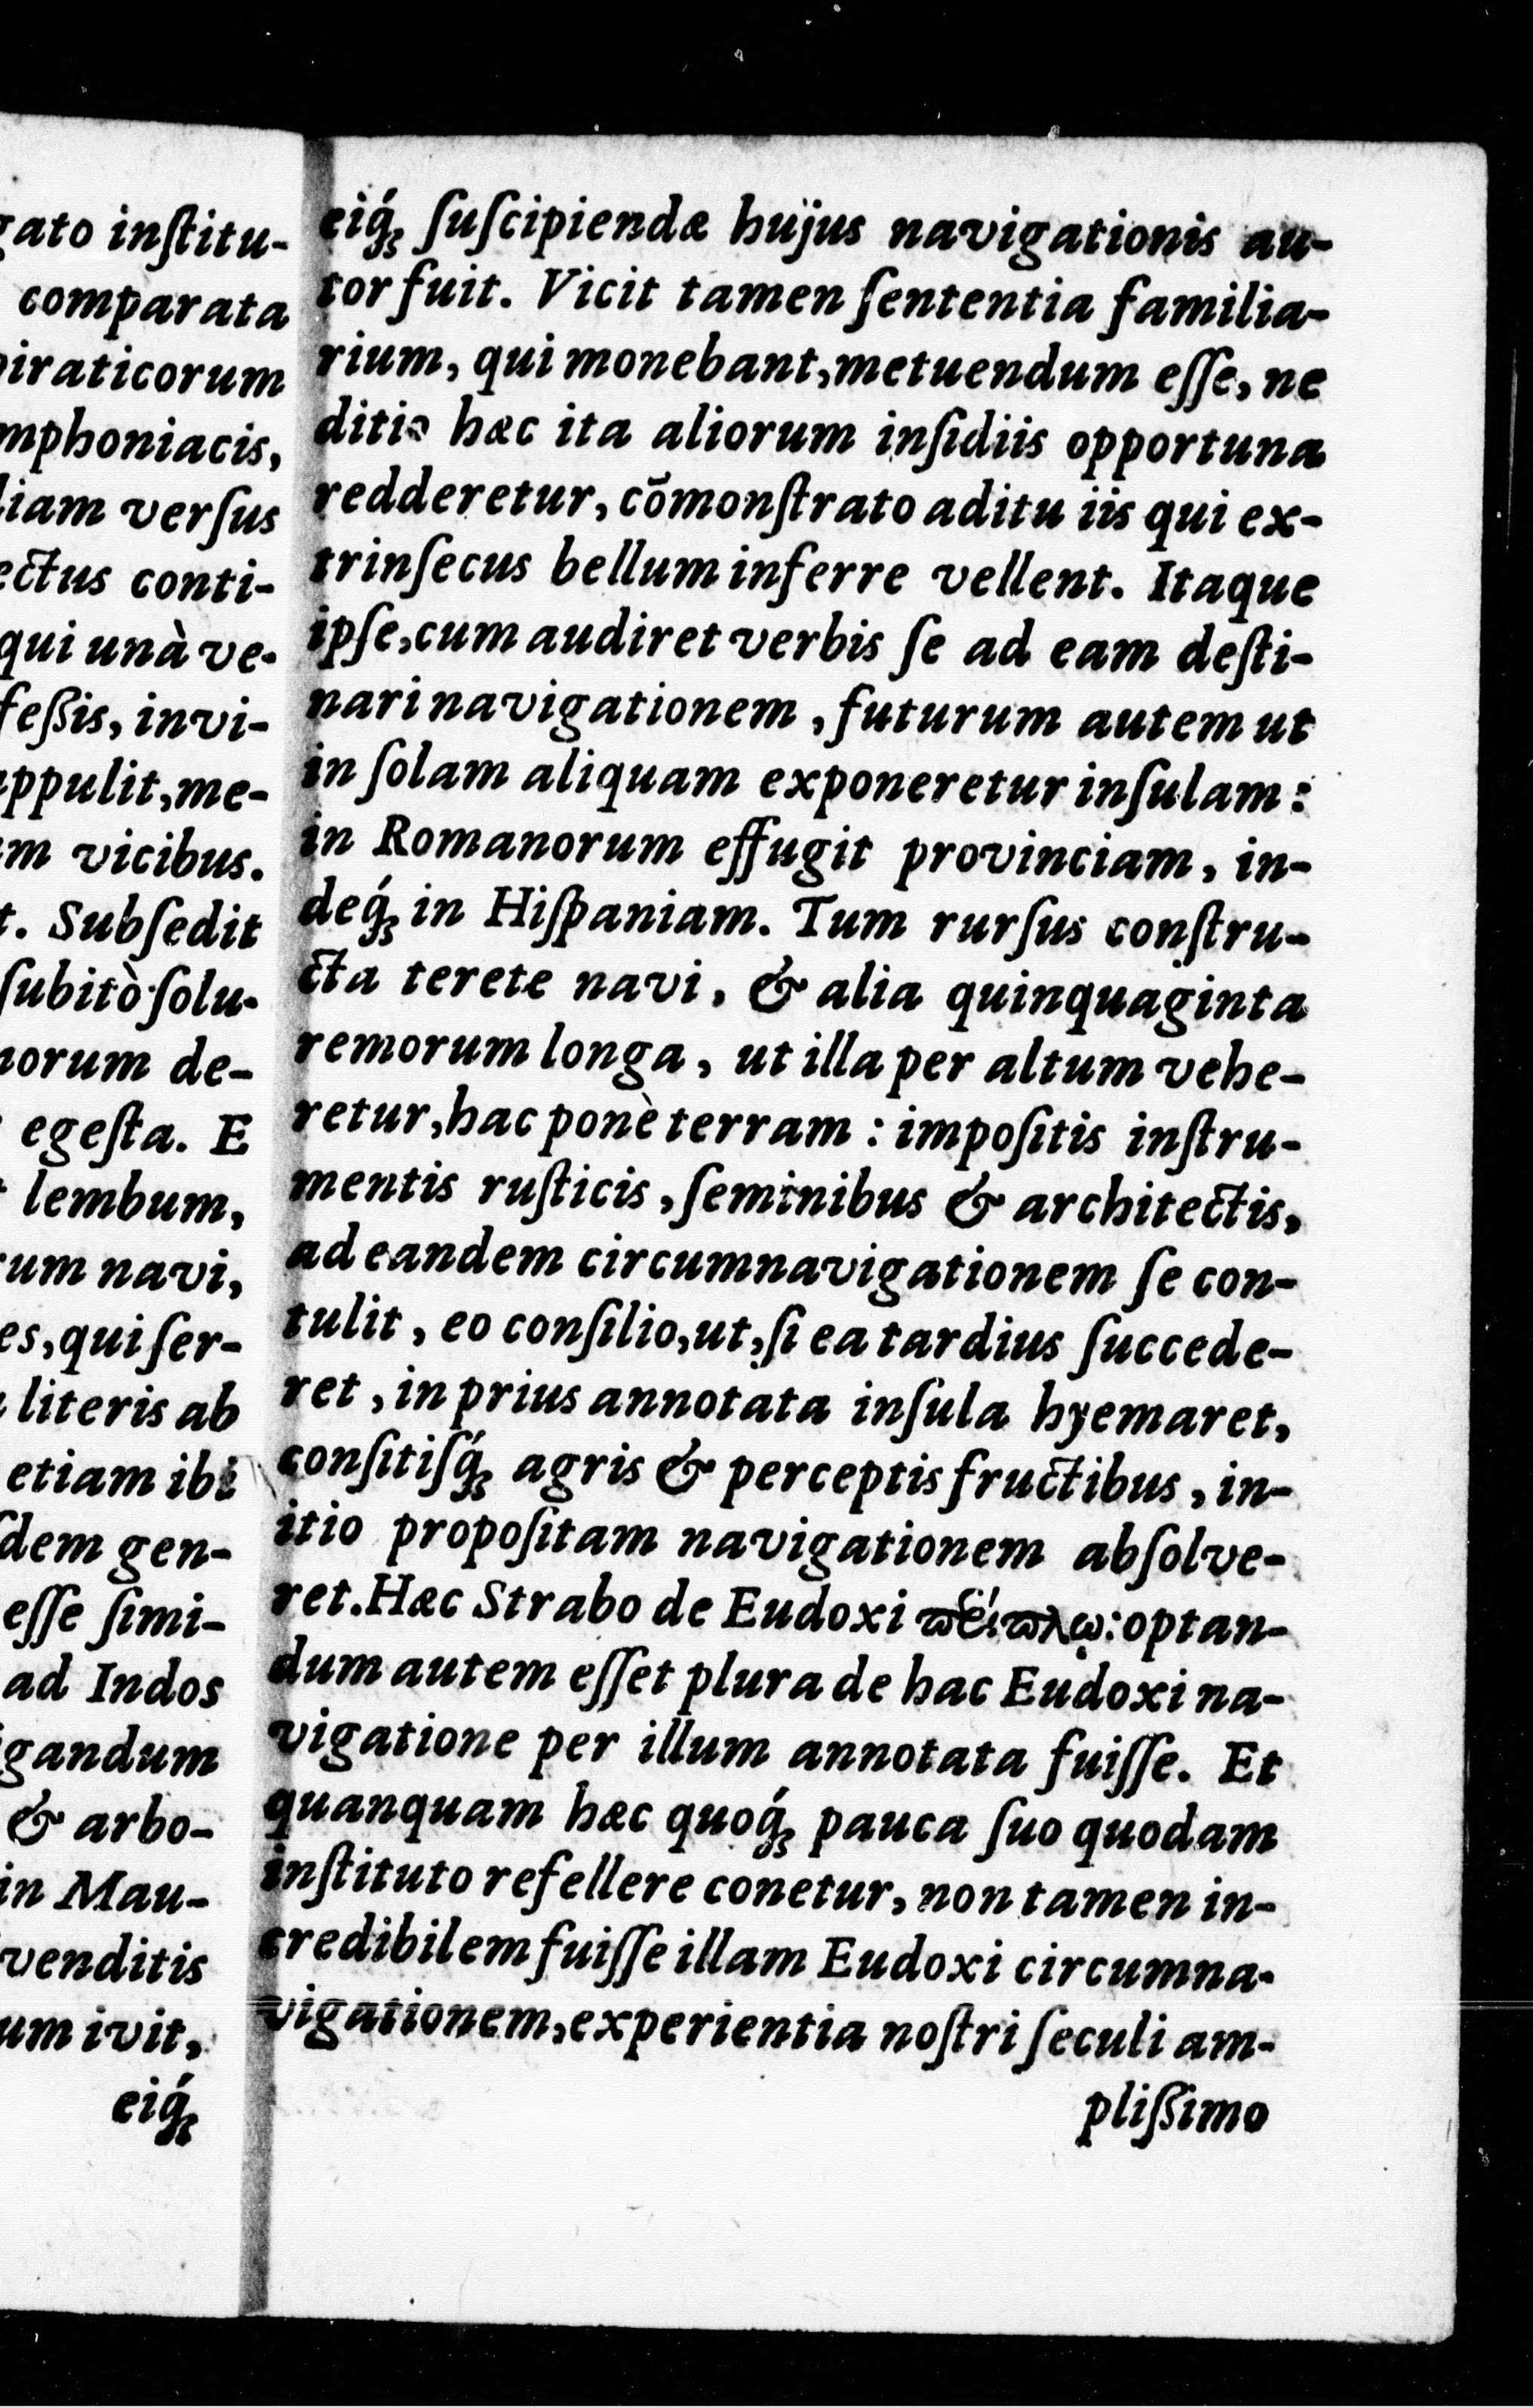 gato inſtitu-
comparata
piraticorum
mphoniacis,
liam verſus
ectus conti-
qui unà ve-
feſsis, invi-
appulit, me-
m vicibus.
t. Subſedit
ſubitò ſolu-
norum de-
egeſta. E
lembum,
rum navi,
es, qui ſer-
literis ab
etiam ibi
ſdem gen-
eſſe ſimi-
ad Indos
gandum
& arbo-
in Mau-
venditis
um ivit,
eiq́;
eiq́; ſuſcipiendæ hujus navigationis au-
tor fuit. Vicit tamen ſententia familia-
rium, qui monebant, metuendum eſſe, ne
ditio hæc ita aliorum inſidiis opportuna
redderetur, cõmonſtrato aditu iis qui ex-
trinſecus bellum inferre vellent. Itaque
ipſe, cum audiret verbis ſe ad eam deſti-
nari navigationem, futurum autem ut
in ſolam aliquam exponeretur inſulam:
in Romanorum effugit provinciam, in-
deq́; in Hiſpaniam. Tum rurſus conſtru-
cta terete navi, & alia quinquaginta
remorum longa, ut illa per altum vehe-
retur, hac ponè terram: impoſitis inſtru-
mentis ruſticis, ſeminibus & architectis,
ad eandem circumnavigationem ſe con-
tulit, eo conſilio, ut, ſi ea tardius ſuccede-
ret, in prius annotata inſula hyemaret,
conſitiſq́; agris & perceptis fructibus, in-
itio propoſitam navigationem abſolve-
ret. Hæc Strabo de Eudoxi : optan-
dum autem eſſet plura de hac Eudoxi na-
vigatione per illum annotata fuiſſe. Et
quanquam hæc quoq́; pauca ſuo quodam
inſtituto refellere conetur, non tamen in-
credibilem fuiſſe illam Eudoxi circumna-
vigationem, experientia noſtri ſeculi am-
pliſsimo